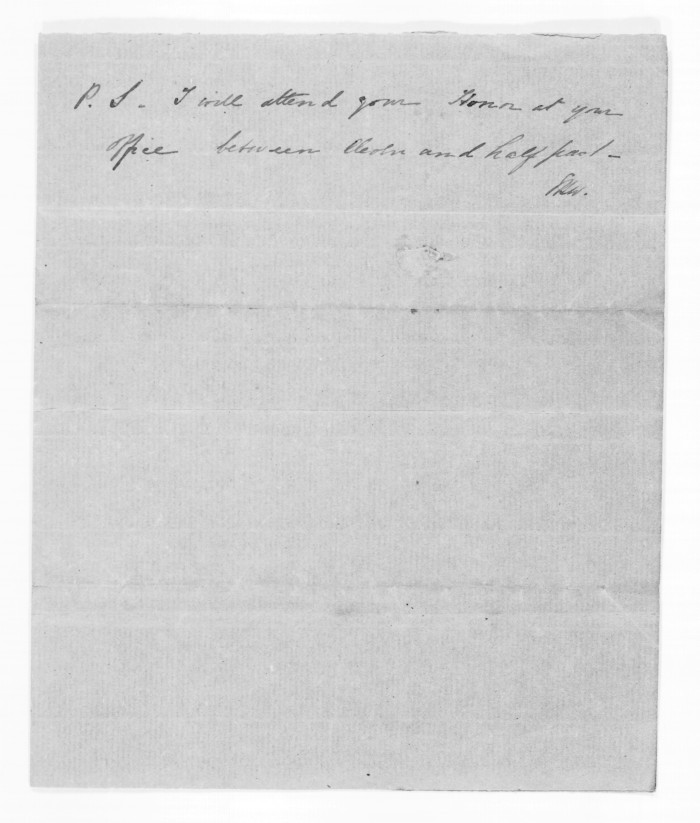 P. S. - I will attend your Honor at your
office between Eleven and half past -